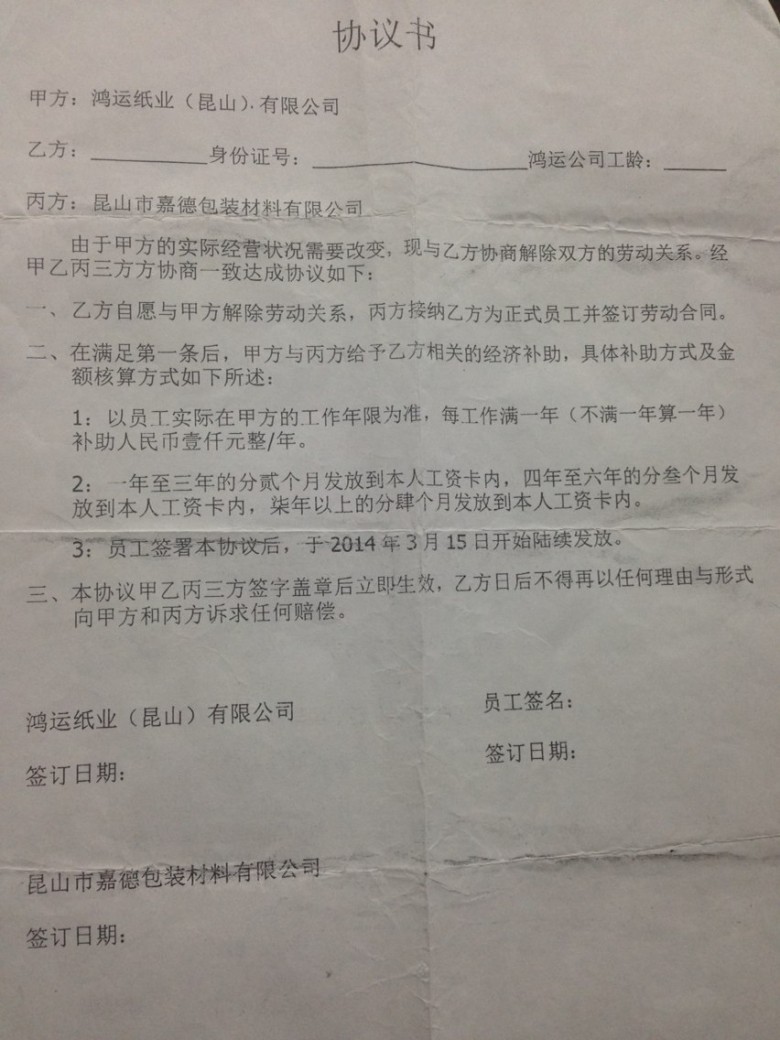 协议书
甲方：鸿运纸业（昆山）.有限公司
乙方：__________身份证号：__________________鸿运公司工龄：_____
丙方：昆山市嘉德包装材料有限公司
由于甲方的实际经营状况需要改变，现与乙方协商解除双方的劳动关系。经
甲乙丙三方方协商一致达成协议如下：
一、乙方自愿与甲方解除劳动关系，丙方接纳乙方为正式员工并签订劳动合同。
二、在满足第一条后，甲方与丙方给予乙方相关的经济补助，具体补助方式及金
额核算方式如下所述：
1：以员工实际在甲方的工作年限为准，每工作满一年（不满一年算一年）
补助人民币壹仟元整/年。
2：一年至三年的分贰个月发放到本人工资卡内，四年至六年的分叁个月发
放到本人工资卡内，柒年以上的分肆个月发放到本人工资卡内。
3：员工签署本协议后，于 2014 年 3 月 15 日开始陆续发放。
三、本协议甲乙丙三方签字盖章后立即生效，乙方日后不得再以任何理由与形式
向甲方和丙方诉求任何赔偿。
鸿运纸业（昆山）有限公司
员工签名：
签订日期：
签订日期：
昆山市嘉德包装材料有限公司
签订日期：